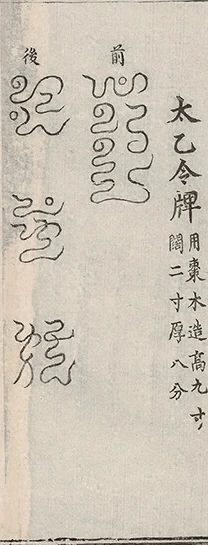 太乙令牌
用棗木造高九寸
闊二寸厚八分
前
後